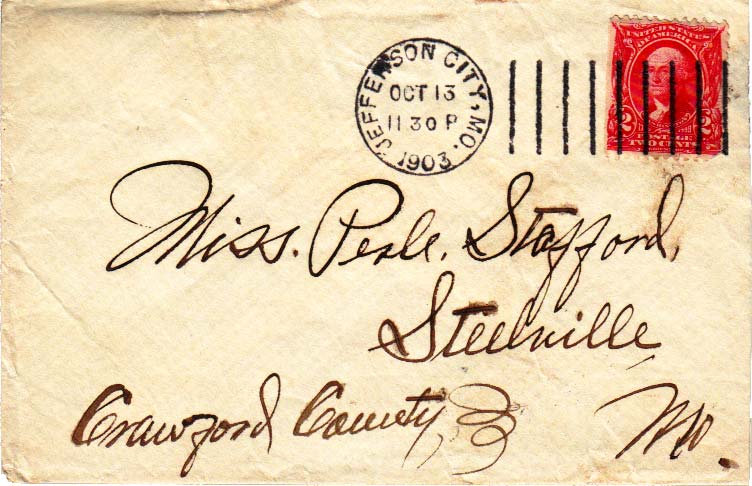 JEFFERSON CITY, MO.
OCT 13
11 30 P
1903
UNITED STATES
OF AMERICA
2 2
POSTAGE
TWO CENTS
Miss. Perle. Stafford,
Steelville
Crawford County, Mo.